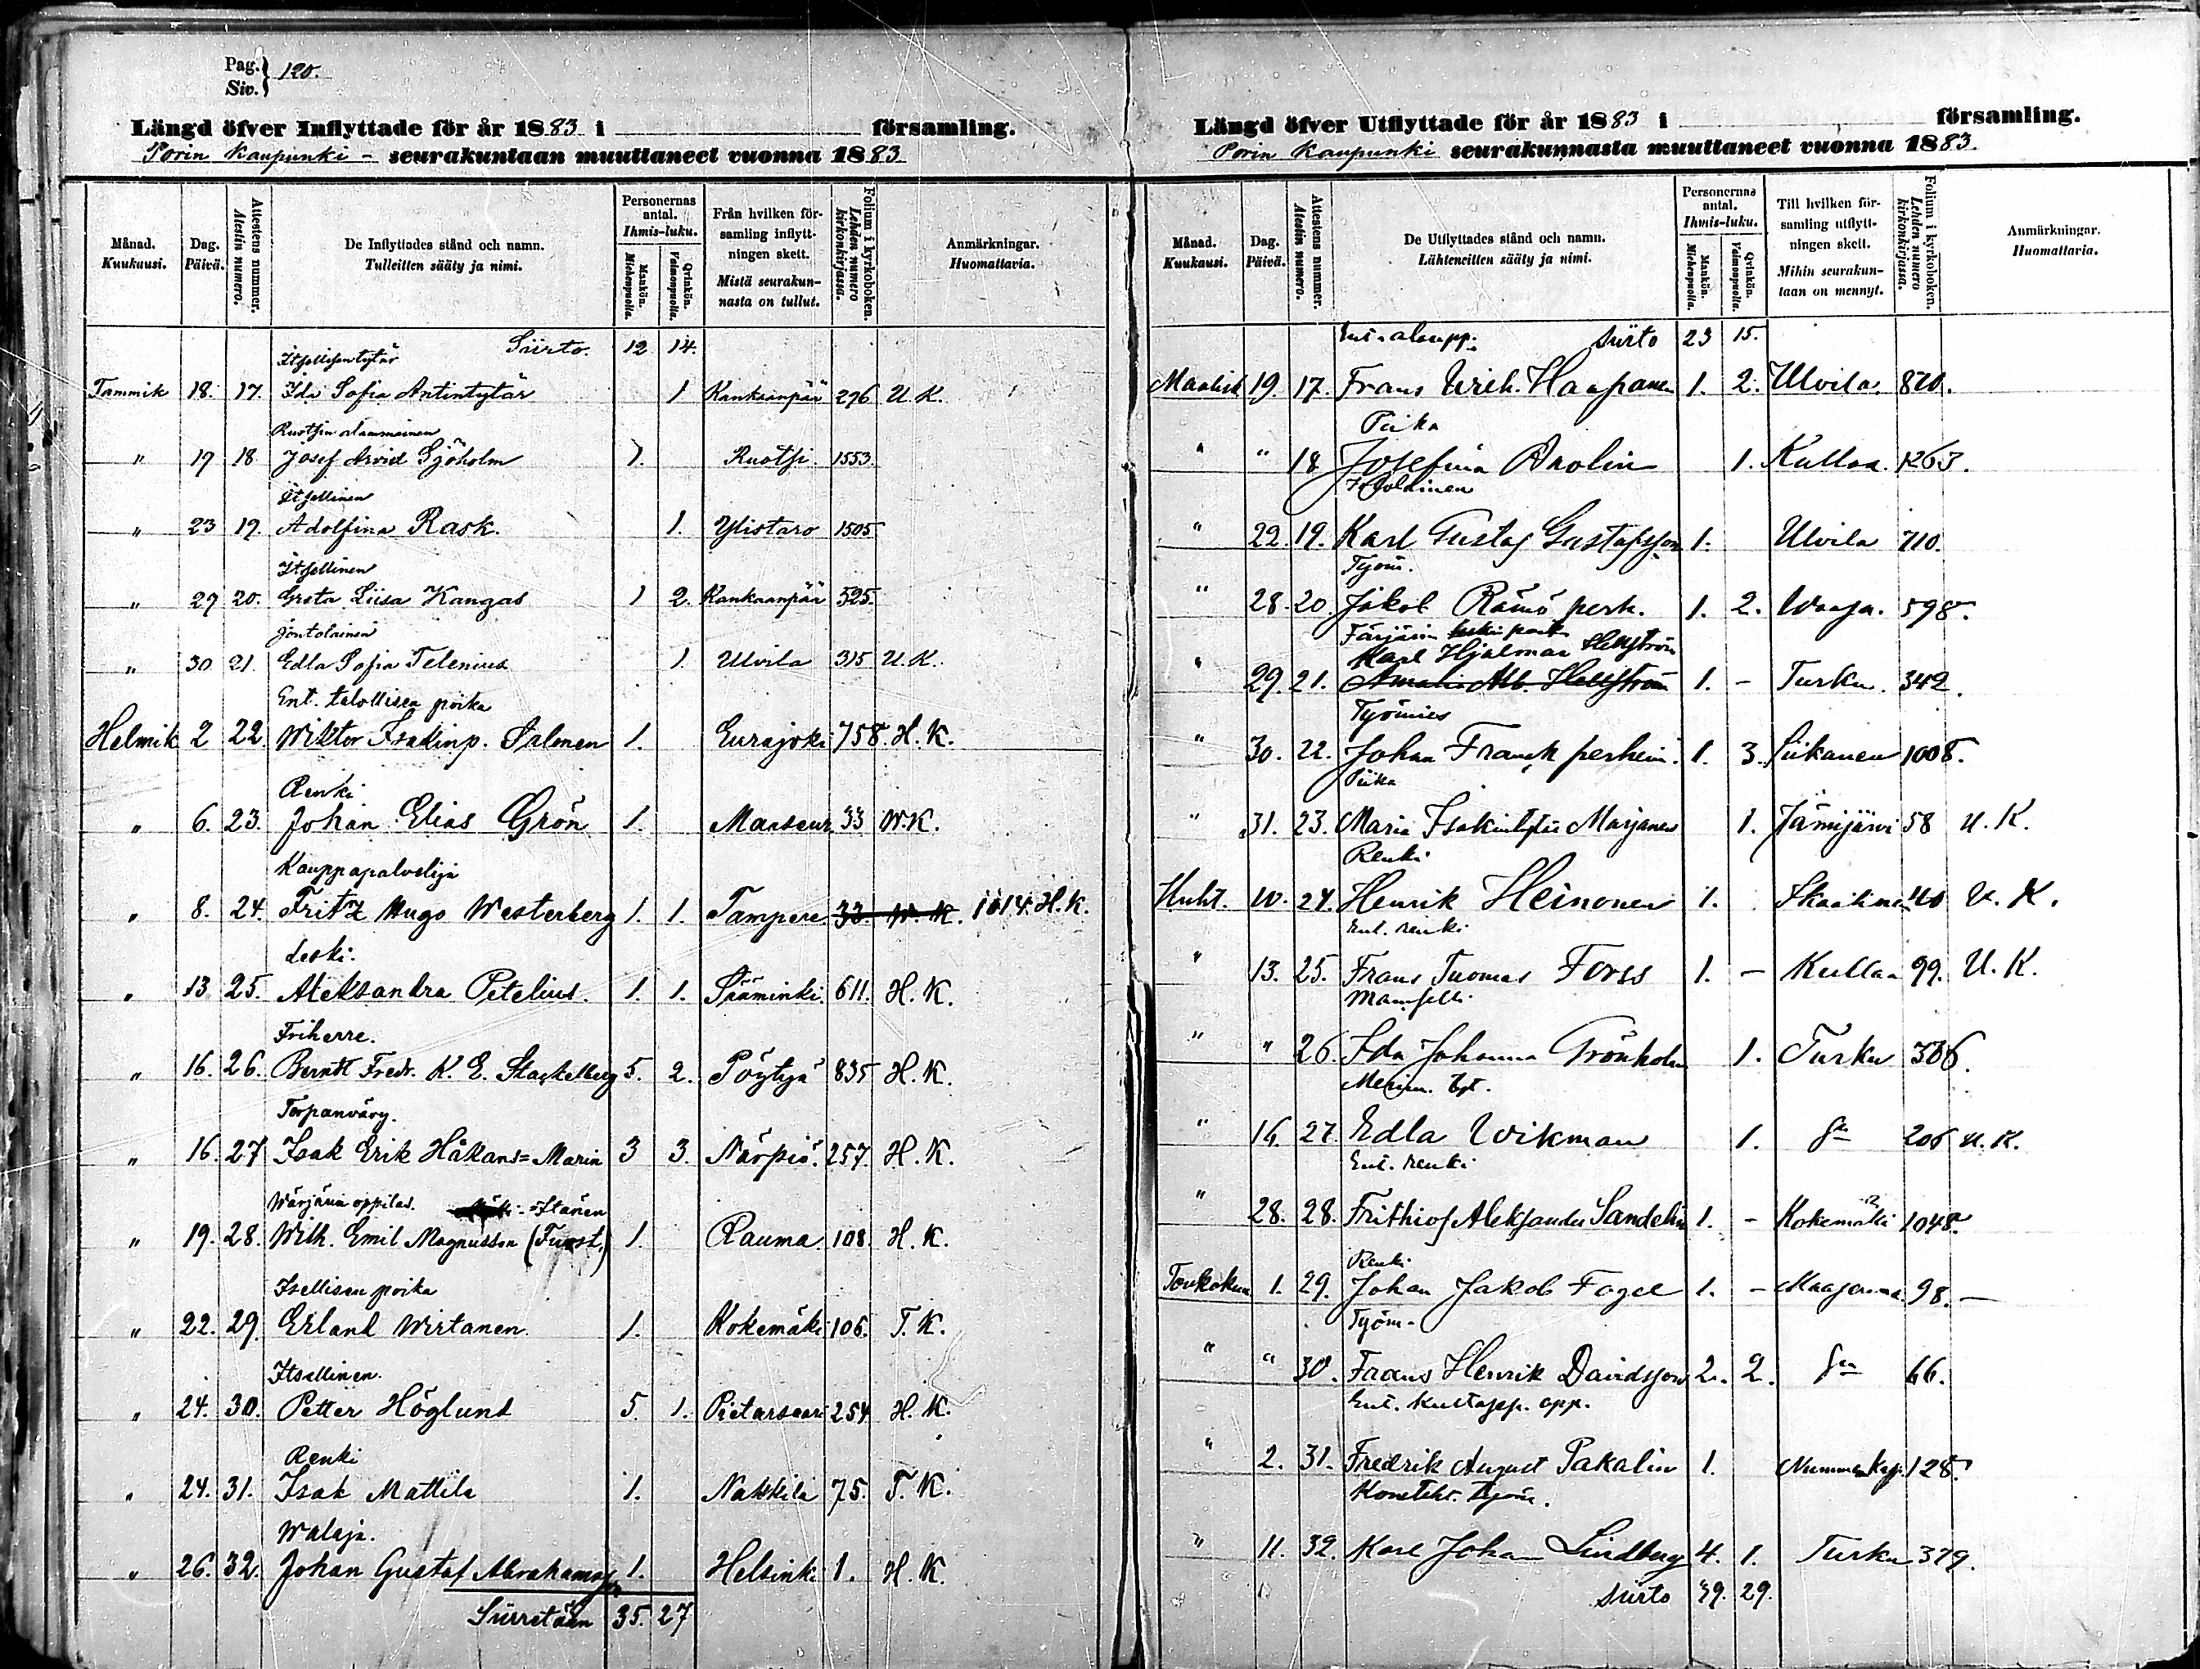 Pag. Siv. } 120.
Längd öfver Inflyttade för år 1883 i församling.
Porin Kaupunki - seurakuntaan muuttaneet vuonna 1883
Månad. Kuukausi.
Dag. Päivä.
Attestens nummer. Atestin numero.
De Inflyttades stånd och namn. Tulleitten sääty ja nimi.
Personernas antal. Ihmis-luku.
Mankön. Miehenpuolia.
Qvinkön. Vaimonpuolia.
Från hvilken församling inflyttningen skett. Mistä seurakunnasta on tullut.
Folium i kyrkoboken. Lehden numero kirkonkirjassa.
Anmärkningar. Huomattavia.
Siirto. 12 14.
Itsellisen tytär
Tammik 18. 17. Ida Sofia Antintytär 1 Kankaanpää 296 U.K.
Ruotsin alammainen
" 19 18 Josef Arvid Sjöholm 1. Ruotsi. 1553.
Itsellinen
" 23 19. Adolfina Rask. 1. Ylistaro 1505
Itsellinen
" 29 20. Greta Liisa Kangas 1 2. Kankaanpää 525.
" 30 21. Edla Sofia Telenius 1. Ulvila 315 U.K.
Ent. talollisen poika
Helmik 2 22. Wiktor Isakinp. Salonen 1. Eurajoki 758 H.K.
Renki
" 6. 23. Johan Elias Grön 1. Maaseur. 33 W.K.
Kauppapalvelija
" 8. 24. Fritz Hugo Westerberg 1. 1. Tampere. 33. W.K. 1014. H.K.
Leski.
" 13 25. Aleksandra Petelius. 1. 1. Sääminki. 611. H.K.
Friherre.
" 16. 26. Berndt Fredr. K. E. Stackelberg 5. 2. Pöytyä 835 H.K.
Torpanväry.
" 16. 27 Isak Erik Håkans=Marin 3 3. Närpiö. 257. H.K.
Wärjärin oppilas.
" 19. 28. Wilh. Emil Magnusson 1. Rauma. 108. H.K.
Itsellisen poika
" 22. 29. Erland Wirtanen. 1. Kokemäki 106. T.K.
Itsellinen.
" 24. 30. Petter Höglund 5. 1. Pietarsaari 254 H.K.
Renki
" 24. 31. Isak Mattila 1. Nakkila 75. T.K.
Walaja.
" 26. 32. Johan Gustaf Abrahamss 1. Helsinki 1. H.K.
Siirretään 35. 27
Längd öfver Utflyttade för år 1883 i församling.
Porin Kaupunki seurakunnasta muuttaneet vuonna 1883.
Månad. Kuukausi.
Dag. Päivä.
Attestens nummer. Atestin numero.
De Utflyttades stånd och namn. Lähteneitten sääty ja nimi.
Personernas antal. Ihmis-luku.
Mankön. Miehenpuolia.
Qvinkön. Vaimonpuolia.
Till hvilken församling utflyttningen skett. Mihin seurakuntaan on mennyt.
Folium i kyrkoboken. Lehden numero kirkonkirjassa.
Anmärkningar. Huomattavia.
siirto 23 15.
Maalisk 19. 17. Frans Wilh. Haapanen 1. 2. Ulvila. 820.
Piika
" " 18 Josefina Arolin 1. Kullaa. 1263.
" 22. 19. Karl Gustaf Gustafsson 1. Ulvila 710.
Työm.
" 28. 20. Jakob Rämö perh. 1. 2. Waasa. 598.
Karl Hjalmar Hellström
" 29. 21. Amalia Alb. Hellström 1. - Turku. 342.
Työmies
" 30. 22. Johan Franck perhein. 1. 3. Siikanen 1008.
Piika
" 31. 23. Maria Isakintytär Marjanen 1. Jämijärvi 58 U.K.
Renki
Huht. 10. 24. Henrik Heinonen 1. U.K.
Ent. renki
" 13. 25. Frans Tuomas Forss 1. - Kullaa 99. U.K.
Mamselli.
" " 26. Ida Johanna Grönholm 1. Turku 306.
Merim. tyt.
" 16. 27. Edla Wikman 1. 206 U.K.
Ent. renki
" 28. 28. Frithiof Aleksander Sandelin 1. - Kokemäki 1048.
Renki
Toukokuu 1. 29. Johan Jakob Fogel 1. - 98. -
Työm.
" " 30. Frans Henrik Davidsson 2. 2. 66.
" 2. 31. Fredrik August Pakalin 1. 128.
" 11. 32. Karl Johan Lindberg 4. 1. Turku 379.
siirto 39. 29.